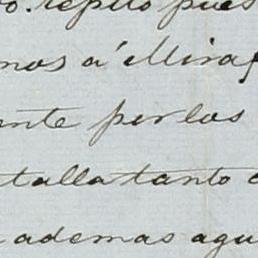 o. repito pues
mos a' Miraf
ente por los
talla tanto
ademas agu